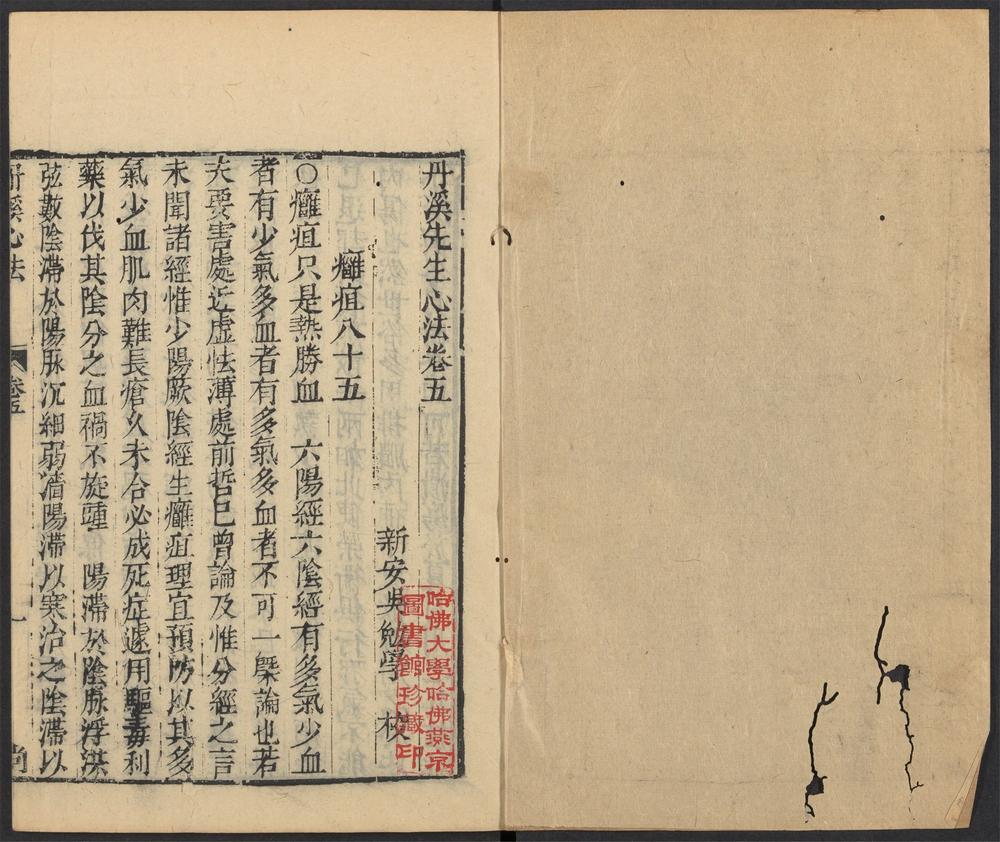 丹溪先生心法卷五
新安吳勉學 校
癰疽八十五
○癰疽只是熱勝血 六陽經六陰經有多氣少血
者有少氣多血者有多氣多血者不可一槩論也若
夫要害處近虛怯薄處前哲已曾論及惟分經之言
未聞諸經惟少陽厥陰經生癰疽理宜預防以其多
氣少血肌肉難長瘡久未合必成死症遽用驅毒利
藥以伐其陰分之血禍不旋踵 陽滯於陰脉浮洪
弦數陰滯於陽脉沉細弱濇陽滯以寒治之陰滯以
丹溪心法 卷五
哈佛大學哈佛燕京
圖書館珍藏印